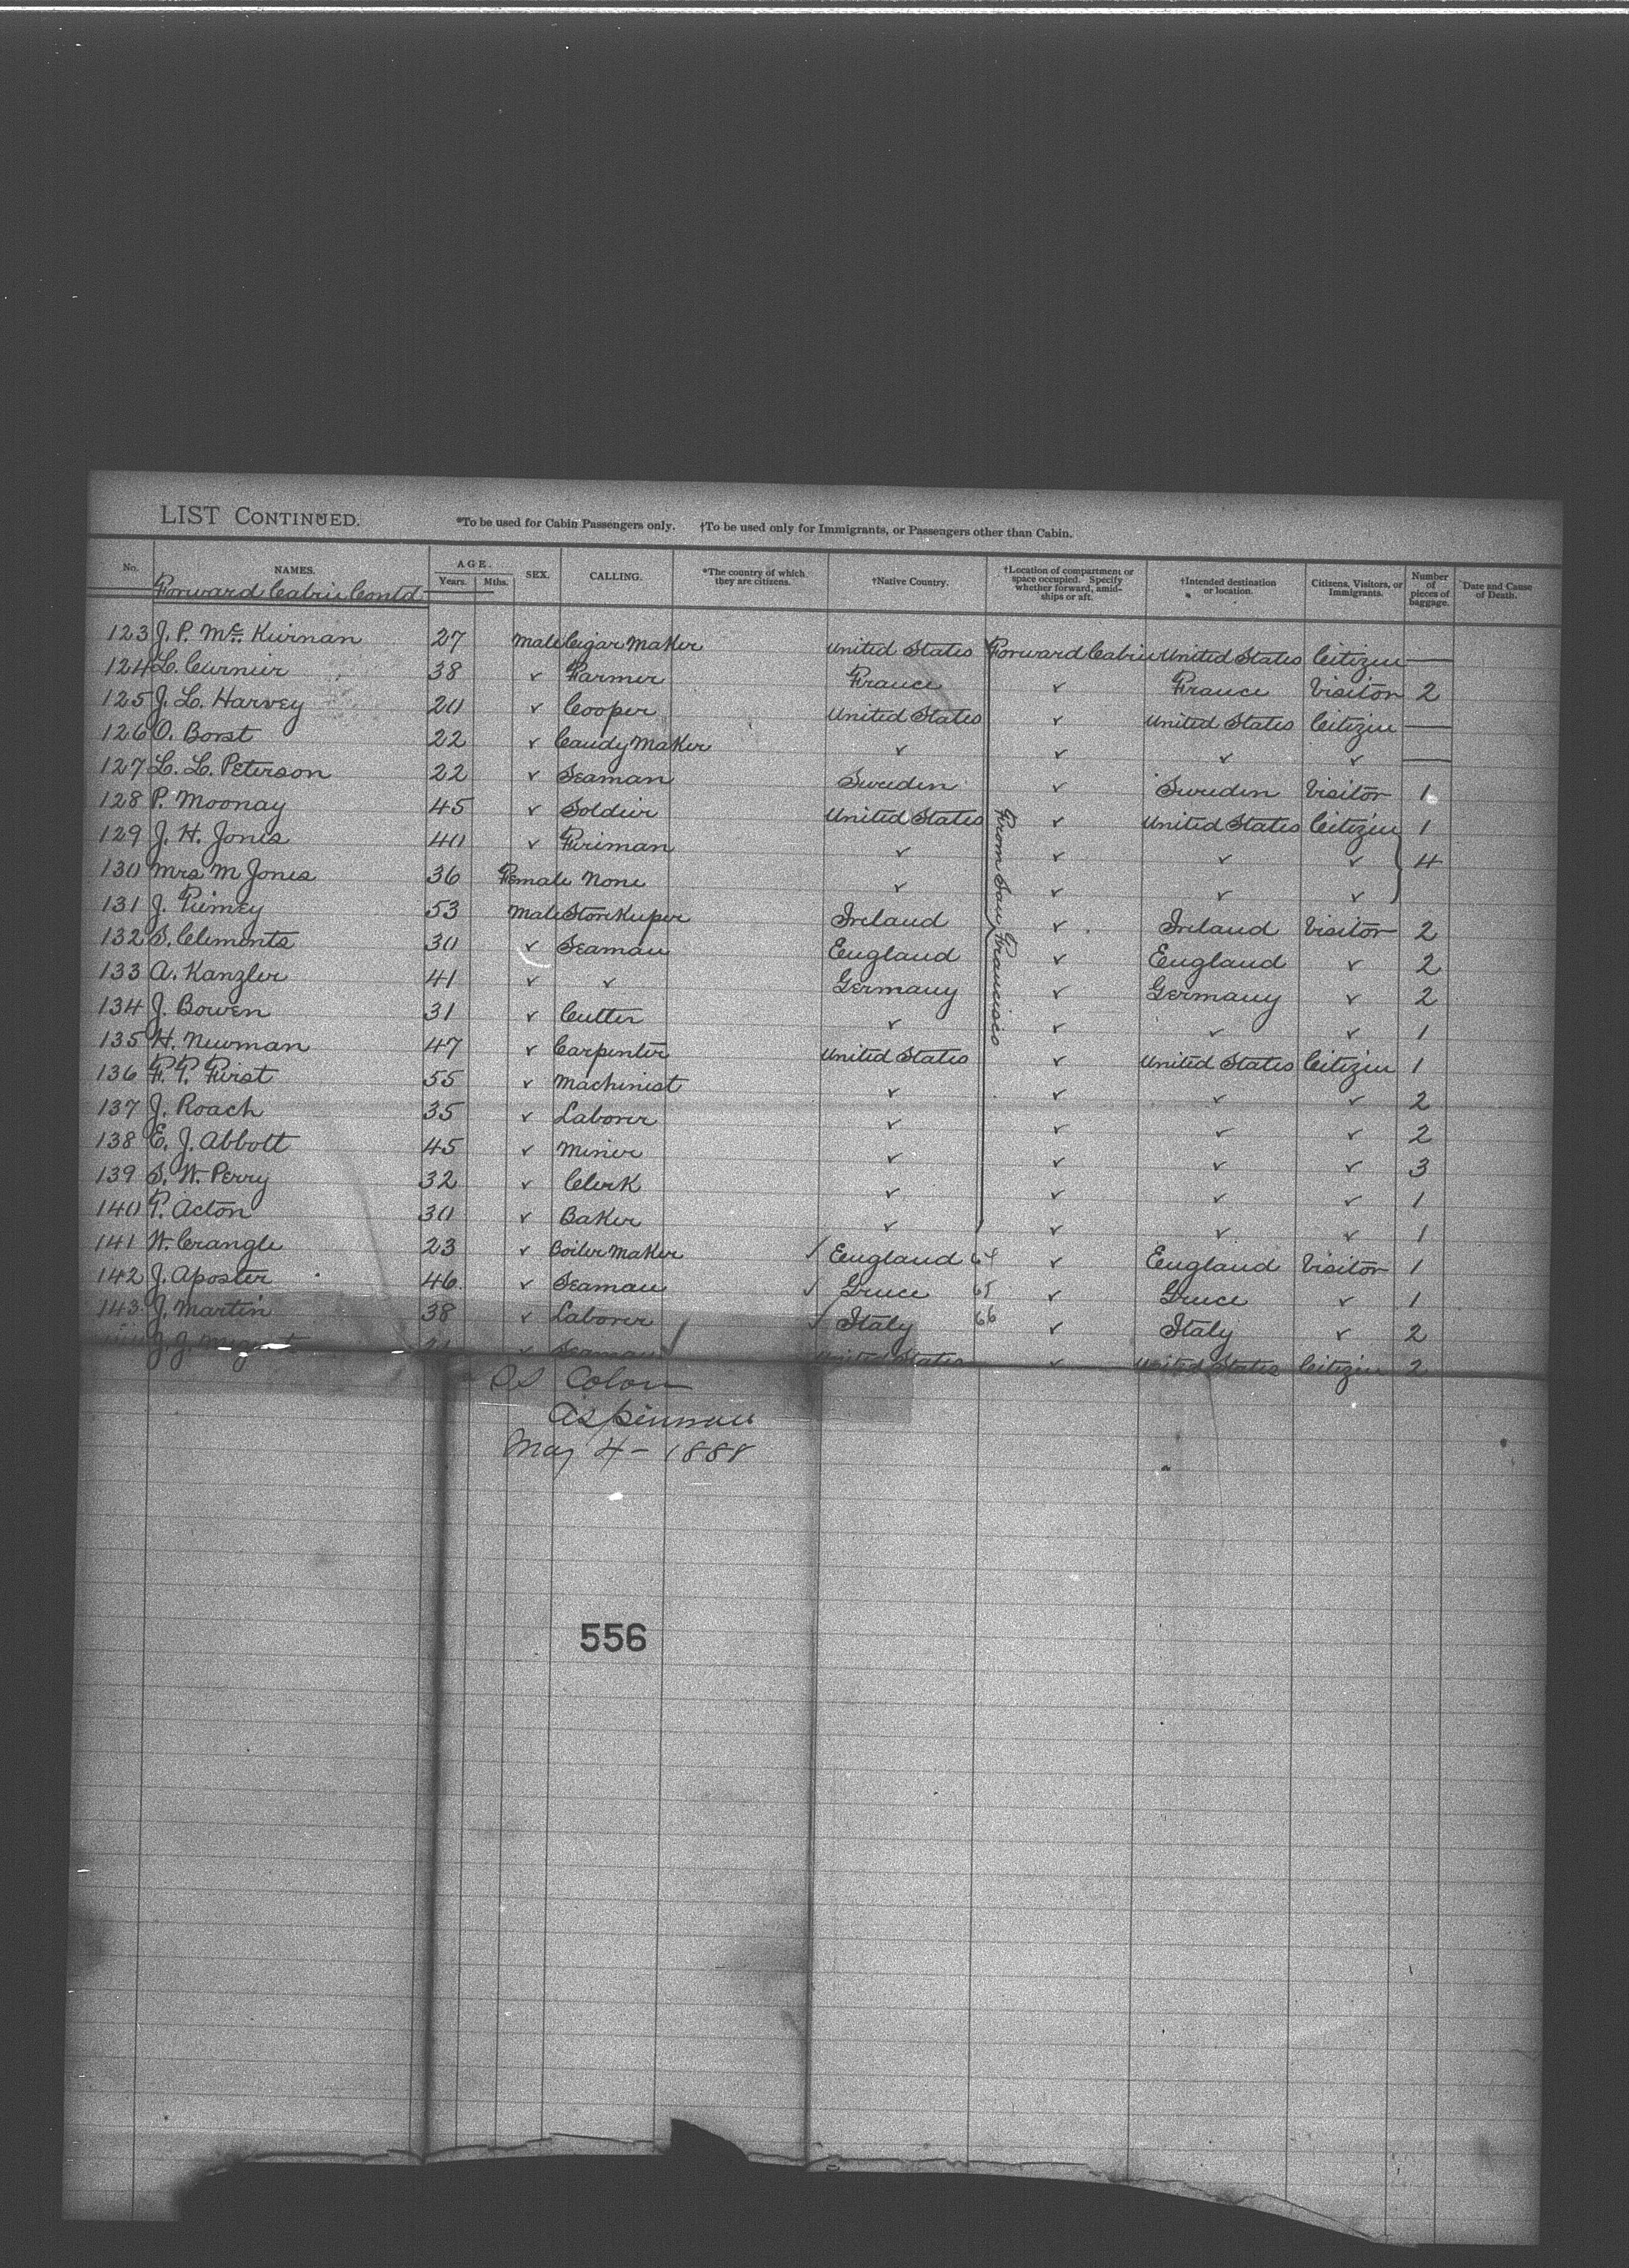 LIST CONTINUED. *To be used for Cabin Passengers only. †To be used only for Immigrants, or Passengers other than Cabin.
No. NAMES. AGE. Years. Mths. SEX. CALLING. *The country of which they are citizens. †Native Country. †Location of compartment or space occupied. Specify whether forward, amidships or aft. †Intended destination or location. Citizens, Visitors, or Immigrants. Number of pieces of baggage. Date and Cause of Death.
Forward Cabin Contd
123 J. P. Mc. Kiernan 27 Male Cigar Maker United States Forward Cabin United States Citizen —
124 L. Curnier 38 ✓ Farmer France ✓ France Visitor 2
125 J. L. Harvey 20 ✓ Cooper United States ✓ United States Citizen —
126 O. Borst 22 ✓ Candy Maker ✓ ✓ ✓ ✓ —
127 L. L. Peterson 22 ✓ Seaman Sweden ✓ Sweden Visitor 1
128 P. Moonay 45 ✓ Soldier United States ✓ United States Citizen 1
129 J. H. Jones 40 ✓ Fireman ✓ ✓ ✓ ✓ } 4
130 Mrs M Jones 36 Female None ✓ ✓ ✓ ✓
131 J. 53 Male Storekeeper Ireland ✓ Ireland Visitor 2
132 S. Clements 30 ✓ Seaman England ✓ England ✓ 2
133 A. Kanzler 41 ✓ ✓ Germany ✓ Germany ✓ 2
134 J. Bowen 31 ✓ Cutter ✓ ✓ ✓ ✓ 1
135 H. Newman 47 ✓ Carpenter United States ✓ United States Citizen 1
136 F. P. Furst 55 ✓ Machinist ✓ ✓ ✓ ✓ 2
137 J. Roach 35 ✓ Laborer ✓ ✓ ✓ ✓ 2
138 E. J. Abbott 45 ✓ Miner ✓ ✓ ✓ ✓ 3
139 S. W. Perry 32 ✓ Clerk ✓ ✓ ✓ ✓ 1
140 P. Acton 30 ✓ Baker ✓ ✓ ✓ ✓ 1
141 W. Crangle 23 ✓ Boiler Maker ✓ England 64 ✓ England Visitor 1
142 J. Aposter 46 ✓ Seaman ✓ Greece 65 ✓ Greece ✓ 1
143 J. Martin 38 ✓ Laborer ✓ Italy 66 ✓ Italy ✓ 2
J. J. ✓ Seaman United States ✓ United States Citizen 2
From San Francisco
SS Colon
Aspinwall
May 4 - 1888
556